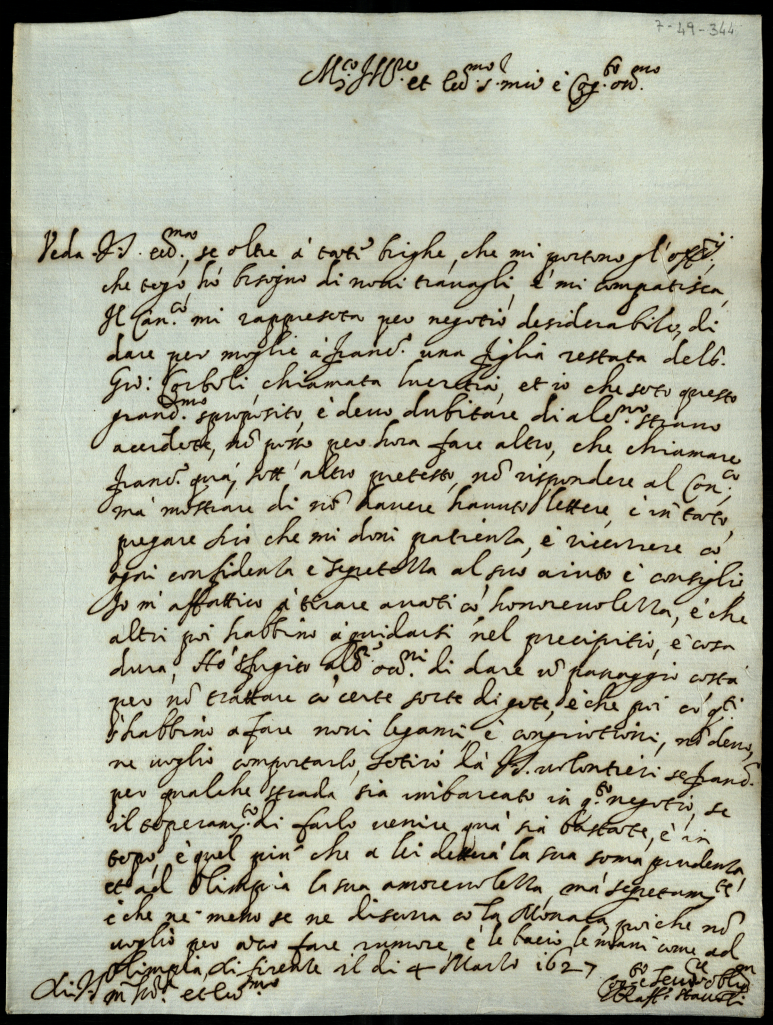 7-49-344
M.to Ill.re et Ecc.mo S. mio e Cog.to oss.mo
Veda V.S. Ecc.ma, se oltre à tanti brighe, che mi portono gl'offitij
che tego, hò bisogno di novi travagli, e mi compatisca,
Il Can.co mi rappresenta per negotio desiderabile, di
dare per moglie à Franc.o una figlia restata del
Gio: Corboli chiamata Lucretia, et io che sento questo
grand.mo sproposito, e devo dubitare di alc.no strano
accidente, nõ posso per hora fare altro, che chiamare
Franc.o quà, sott'altro pretesto, nõ rispondere al Can.co
mà mostrare di nõ havere havuto lettere, e in tãto,
pregare Dio che mi doni patienta, è ricorrere cõ
ogni confidenta e segretezza al suo aiuto è consiglio
Io m'affattico à tirare avãti cõ honorevolezza, è che
altri poi habbino à guidarsi nel precipitio, è cosa
dura, Hò sfugito di dare passaggio costà
per nõ trattare cõ certe sorte di gẽte, è che poi cõ q.ti
s'habbino a fare novi legami e congiuntioni, nõ devo,
ne voglio comportarlo, sentirò da V.S. volontieri se Franc.o
per qualche strada sia imbarcato in q.to negotio, se
il temperam.to di farlo venire quà sia bastãte, è in
tẽpo, è quel più che a lei detterà la sua soma prudenta,
et ad Olimpia la sua amorevolezza, mà segretam.te
è che ne meno se ne discorra cõ la Monaca, poiche nõ
voglio per ancõ fare rumore, è le bacio le mani come ad
Olimpia, di Firente il di 4 Marzo 1627
di V.S. m.to Ill.re et Ecc.ma
Cog.to e Ser.re oblig.mo
Raff.o